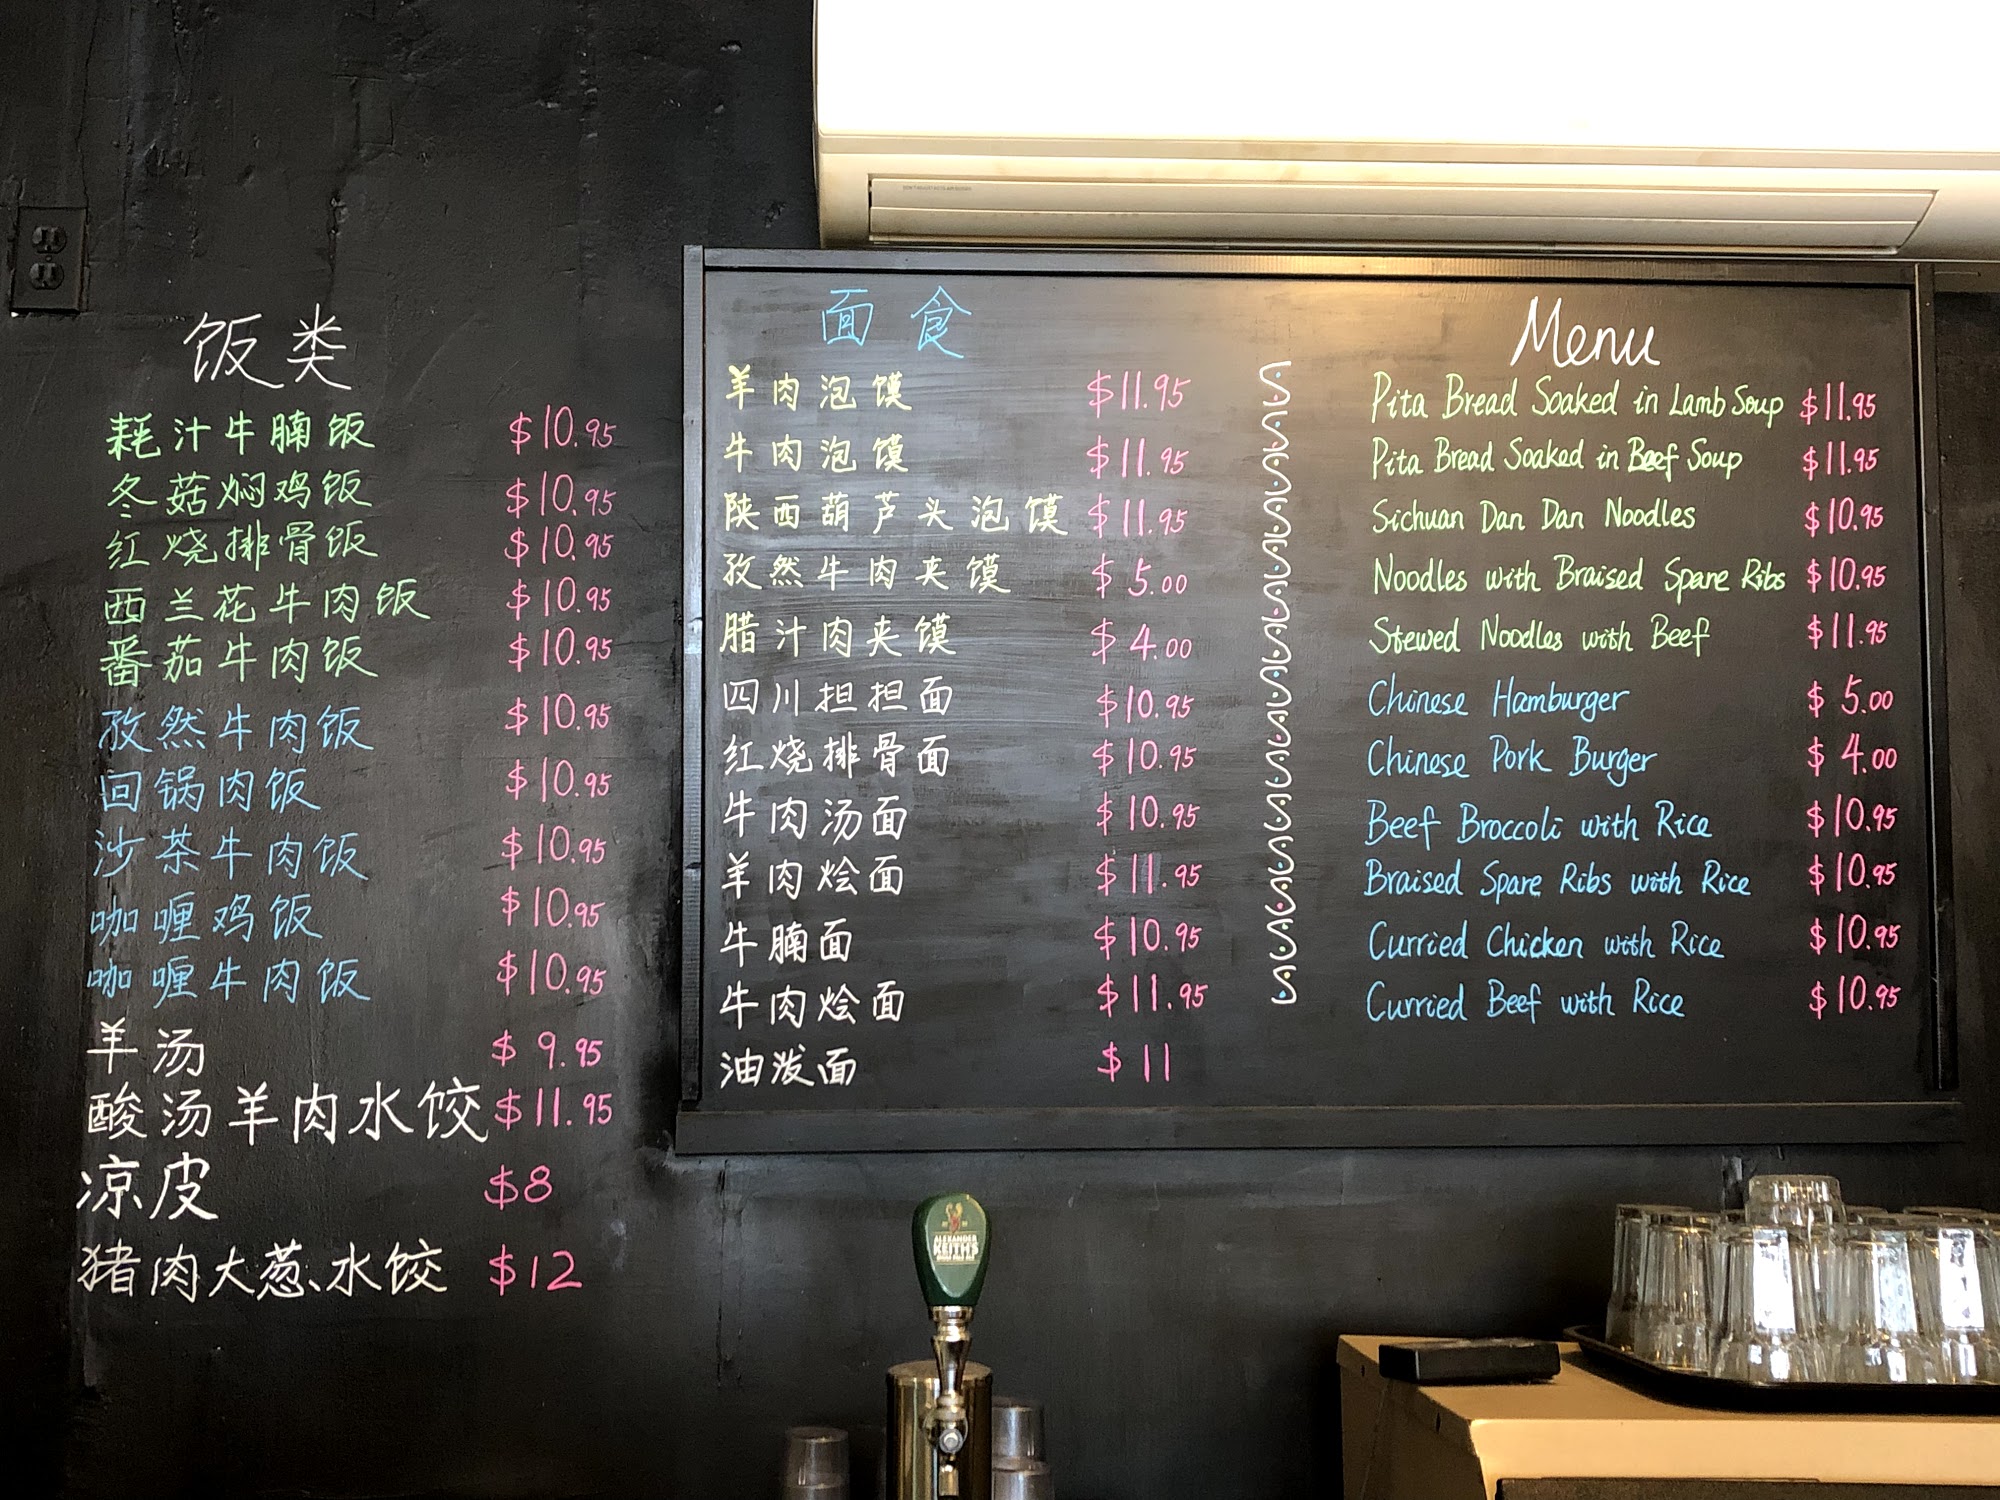 饭类
耗汁牛腩饭 $10.95
冬菇焖鸡饭 $10.95
红烧排骨饭 $10.95
西兰花牛肉饭 $10.95
番茄牛肉饭 $10.95
孜然牛肉饭 $10.95
回锅肉饭 $10.95
沙茶牛肉饭 $10.95
咖喱鸡饭 $10.95
咖喱牛肉饭 $10.95
羊汤 $9.95
酸汤羊肉水饺 $11.95
凉皮 $8
猪肉大葱水饺 $12
面食
羊肉泡馍 $11.95
牛肉泡馍 $11.95
陕西葫芦头泡馍 $11.95
孜然牛肉夹馍 $5.00
腊汁肉夹馍 $4.00
四川担担面 $10.95
红烧排骨面 $10.95
牛肉汤面 $10.95
羊肉烩面 $11.95
牛腩面 $10.95
牛肉烩面 $11.95
油泼面 $11
Menu
Pita Bread Soaked in Lamb Soup $11.95
Pita Bread Soaked in Beef Soup $11.95
Sichuan Dan Dan Noodles $10.95
Noodles with Braised Spare Ribs $10.95
Stewed Noodles with Beef $11.95
Chinese Hamburger $5.00
Chinese Pork Burger $4.00
Beef Broccoli with Rice $10.95
Braised Spare Ribs with Rice $10.95
Curried Chicken with Rice $10.95
Curried Beef with Rice $10.95
ALEXANDER
KEITH'S